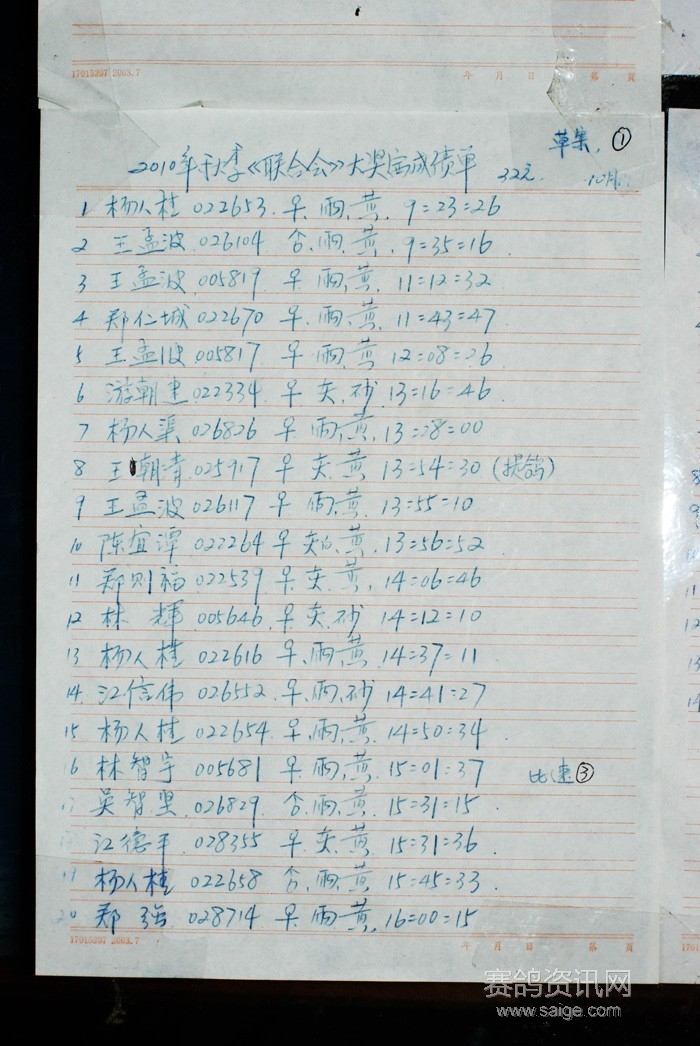 17015397 2003.7 年 月 日 第 页
草集. ①
2010年秋季《联合会》大奖赛成绩单 32元. 10月.
1 杨人桂 022653. 早. 雨. 黄. 9=23=26
2 王孟波 026104 否. 雨. 黄. 9=35=16.
3 王孟波 005819 早. 雨. 黄. 11=12=32
4 郑仁城 022670 早. 雨. 黄. 11=43=47.
5 王孟波 005817 早. 雨黄 12=08=26
6 游朝建 022334 早 灰. 砂. 13=16=46.
7 杨人渠 026826 早. 雨, 黄. 13=28=00
8 王朝清 025917 早 灰. 黄. 13=54=30 (损鸽)
9 王孟波 026117 早 雨. 黄. 13=55=10
10 陈宜潭 022264 早 灰白. 黄. 13=56=52
11 郑则福 022539 早. 灰. 黄. 14=06=46
12 林 辉 005646. 早. 灰. 砂 14=12=10
13 杨人桂 022616 早. 雨. 黄. 14=37=11
14. 江信伟 026552 早. 雨. 砂 14=41=27
15 杨人桂 022654. 早. 雨. 黄. 14=50=34
16 林智宇 005681 早. 雨. 黄. 15=01=37 比速③
吴智坚 026829 否. 雨. 黄. 15=31=15.
江德平 028355 早. 灰. 黄 15=31=36
杨人桂 022658 否. 雨. 黄. 15=45=33.
20 郑 强 028714 早. 雨. 黄. 16=00=15
17015397 2003.7 年 月 日 第 页
赛鸽资讯网
www.saige.com